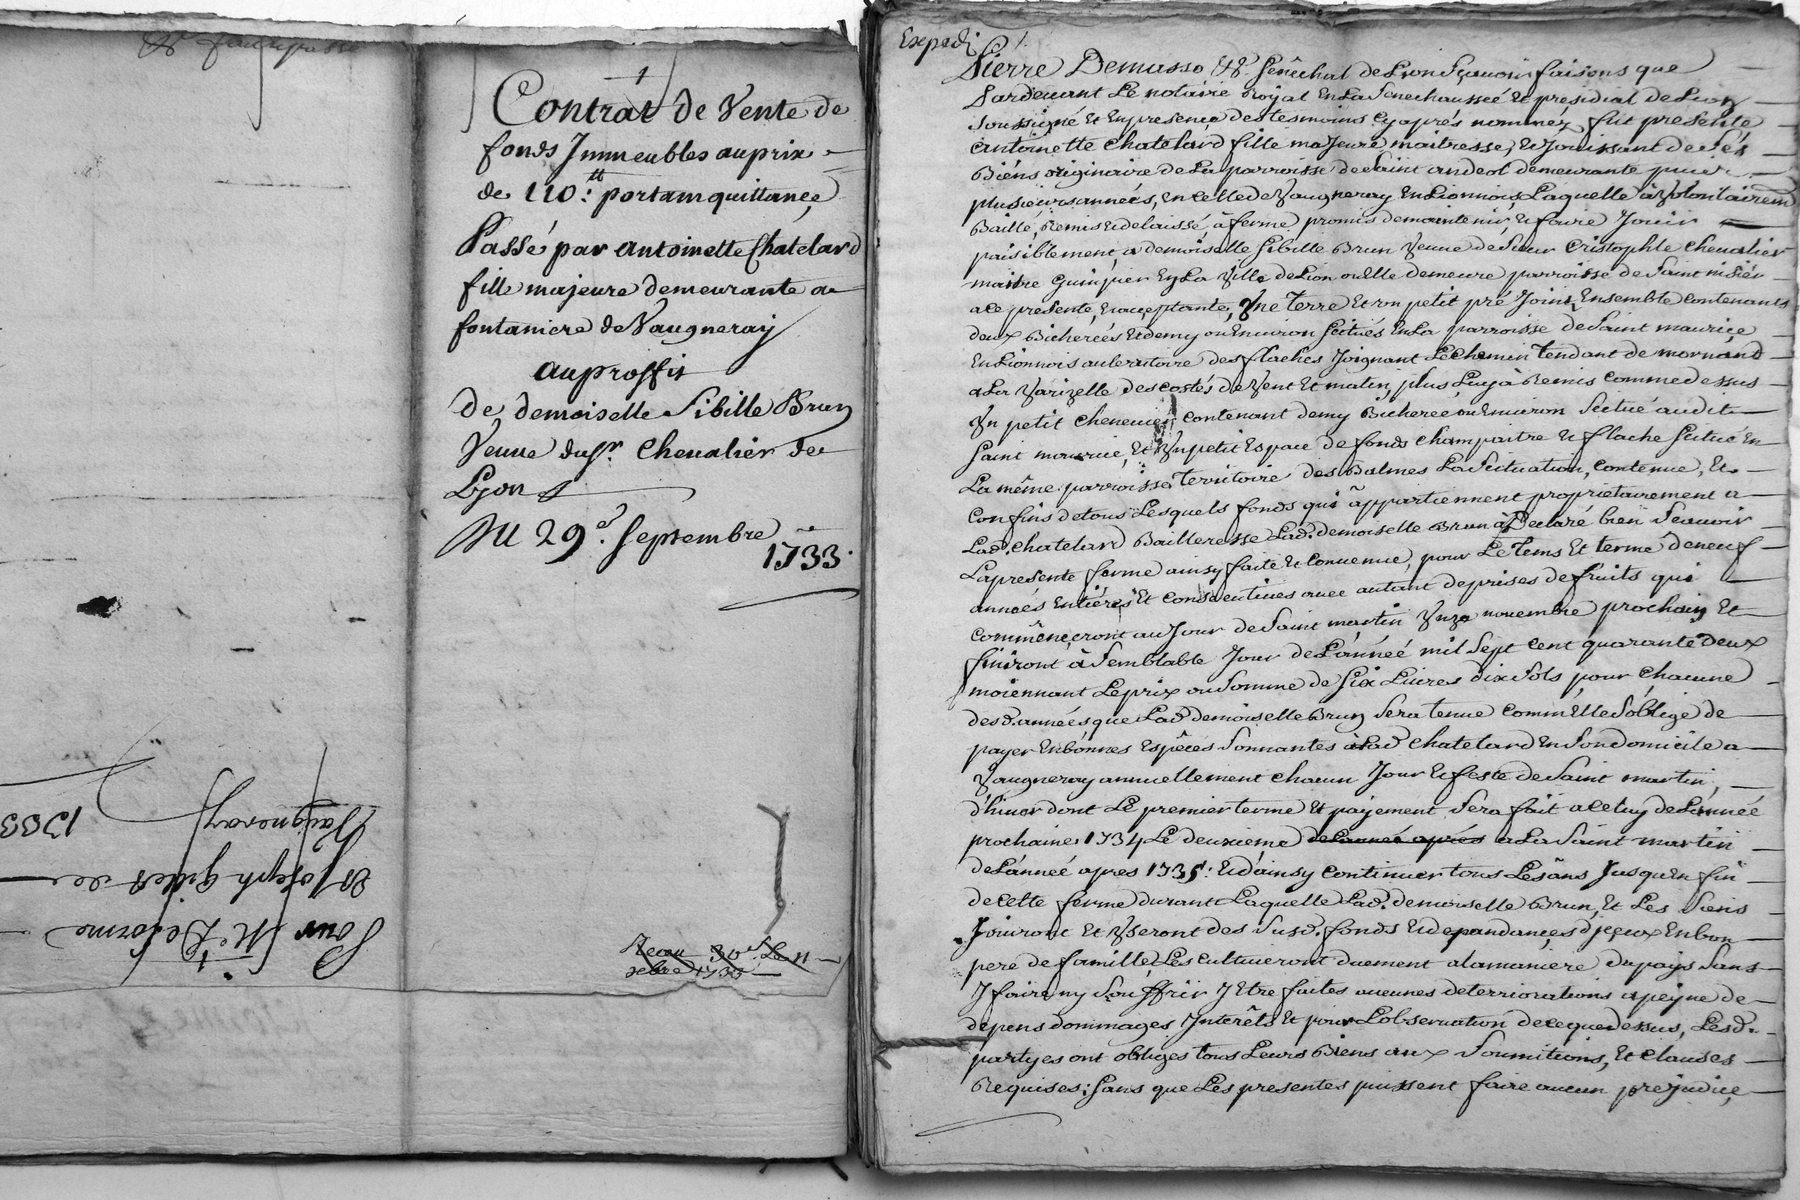 Contrat de Vente de
fonds Immeubles au prix
de 110:ᵗᵗ portam quittance
Passé par Antoinette Chatelard
fille majeure demeurante a
fontaniere de Vaugneray
au proffit
de demoiselle Sibille Brun
Veuve du sʳ. Chevalier de
Lyon
Du 29ᵉ. Septembre
1733.
Pour Mᵉ Delorme
Joseph gillet de
Vaugneray
1733
Expedié
Pierre Demasso &ᵃ. Senéchal de Lion Scavoir faisons que
Pardevant Le notaire Roÿal en La Senechaussée et presidial de Lion
soussigné et en presence des tesmoins cy après nommez fut presente
antoinette chatelard fille majeure maitresse, et Jouissant de ses
Biéns originaire de La parroisse de Saint andeol demeurante puis
plusieurs années, en celle de Vaugneray en Lionnois Laquelle à Volontairemᵗ
Baillé, Remis et delaissé à ferme promis de maintenir, et faire Joüir
paisiblement, a demoiselle Sibille Brun Veuve de Sieur Cristophle Chevalier
maitre Guinpier en La Ville de Lion ou Elle demeure parroisse de Saint nisiér
a ce presente, et acceptante, Vne Terre et un petit pré Joins Ensemble contenants
deux Bicherées et demy ou Environ scitués en La parroisse de Saint maurice
En Lionnois au territoire des flaches Joignant Le chemin tendant de mornand
a La Varizelle des costés de Vent et matin, plus Luy à Remis comme dessus
Vn petit chenevier contenant demy Bicherée ou Environ scitué audit
Saint maurice, et Vn petit Espace de fonds champaitre et flache scitué en
La même parroisse territoire des Balmes La scituation, contenue, et
confins de tous Lesquels fonds qui appartiennent proprietairement a
Lad. chatelard Bailleresse Lad. demoiselle Brun à Declaré bien Scavoir
La presente ferme ainsy faite et convenue, pour Le Tems et terme de neuf
années Entiéres et consecutives avec autant de prises de fruits qui
commenceront au Jour de Saint martin Vnze novembre prochain et
finiront à Semblable Jour de L'année mil sept cent quarante deux
moiennant Le prix ou somme de Six Livres dix Sols pour chacune
desd. années que Lad. demoiselle Brun sera tenue comm'Elle s'oblige de
payer En bonnes Espéces Sonnantes à Lad. chatelard En son domicile a
Vaugneray annuellement chacun Jour et feste de Saint martin
d'hiver dont Le premier terme et payement sera fait a celuy de L'année
prochaine 1734 Le deuxieme de L'année après a La Saint martin
de L'année apres 1735: et d'ainsy continuer tous Les ans Jusqu'en fin
de cette ferme durant Laquelle Lad. demoiselle Brun, et Les siens
Joüiront et Vseront des susd. fonds et dependances d'jceux En bon
pere de famille, Les cultiveront duement a la maniére du païs sans
y faire ny souffrir y Etre faites aucunes deterriorations a peine de
depens dommages Interêts et pour L'observation de ce que dessus, Lesd.
partyes ont obligés tous Leurs Biens aux soumitions, et clauses
Requises; sans que Les presentes puissent faire aucun prejudice,